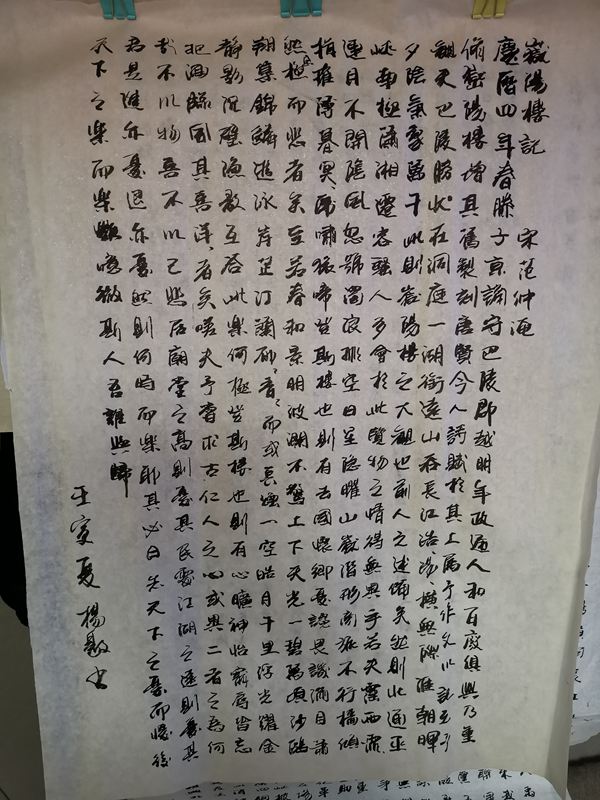 嶽陽樓記
宋范仲淹
慶曆四年春滕子京謫守巴陵郡越明年政通人和百廢俱興乃重
脩嶽陽樓增其舊製刻唐賢今人詩賦於其上屬予作文以記之予
觀夫巴陵勝狀在洞庭一湖銜遠山吞長江浩浩湯湯橫無際涯朝暉
夕陰氣象萬千此則嶽陽樓之大觀也前人之述備矣然則北通巫
峽南極瀟湘遷客騷人多會於此覽物之情得無異乎若夫霪雨霏
連月不開陰風怒號濁浪排空日星隱曜山嶽潛形商旅不行檣傾
楫摧薄暮冥冥虎嘯猿啼登斯樓也則有去國懷鄉憂讒畏譏滿目蕭
然感極而悲者矣至若春和景明波瀾不驚上下天光一碧萬頃沙鷗
翔集錦鱗游泳岸芷汀蘭郁々青々而或長煙一空皓月千里浮光耀金
靜影沉璧漁歌互答此樂何極登斯樓也則有心曠神怡寵辱皆忘
把酒臨風其喜洋々者矣嗟夫予嘗求古仁人之心或異二者之為何
哉不以物喜不以己悲居廟堂之高則憂其民處江湖之遠則憂其
君是進亦憂退亦憂然則何時而樂耶其必曰先天下之憂而憂後
天下之樂而樂歟噫微斯人吾誰與歸
壬寅夏楊毅書